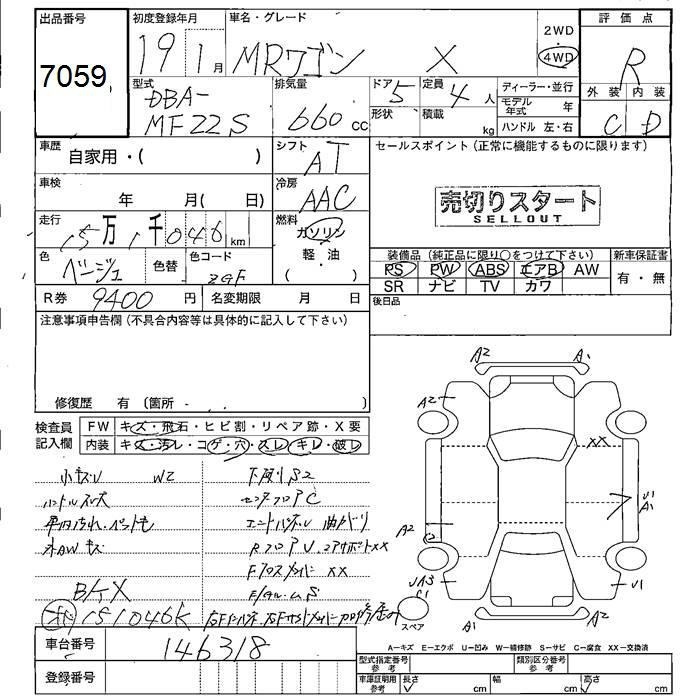 出品番号
7059
初度登録年月
19 1月
車名・グレード
MRワゴン X
2WD
4WD
評価点
R
外装 内装
C D
型式
DBA-
MF22S
排気量
660 cc
ドア 5
形状
定員 4 人
積載 kg
ディーラー・並行
モデル年式 年
ハンドル 左・右
車歴
自家用・( )
シフト
AT
セールスポイント(正常に機能するものに限ります)
売切りスタート
SELLOUT
車検
年 月( 日)
冷房
AAC
走行
15万1千046 km
燃料
ガソリン
軽・油
( )
色
ベージュ
色替
色コード
ZGF
装備品(純正品に限り○をつけて下さい)
PS PW ABS エアB AW
SR ナビ TV カワ
新車保証書
有・無
R券 9400 円
名変期限 月 日
後日品
注意事項申告欄(不具合内容等は具体的に記入して下さい)
修復歴 有(箇所 )
検査員記入欄
FW キズ・飛石・ヒビ割・リペア跡・X要
内装 キズ・汚レ・コゲ・穴・スレ・キレ・破レ
小キズU W2
下廻りS2
ハンドルスレ
センターフロアC
エンドパネル曲がり
RフロアU.コアサポートXX
FクロスメンバーXX
151046K
車台番号
146318
登録番号
A2 A1
A2
XX
U1
A1
A2
UA3
C1
U1
A1 A2
スペア
A−キズ E−エクボ U−凹み W−補修跡 S−サビ C−腐食 XX−交換済
型式指定番号 参考
類別区分番号 参考
車庫証明用 参考
長さ cm
幅 cm
高さ cm